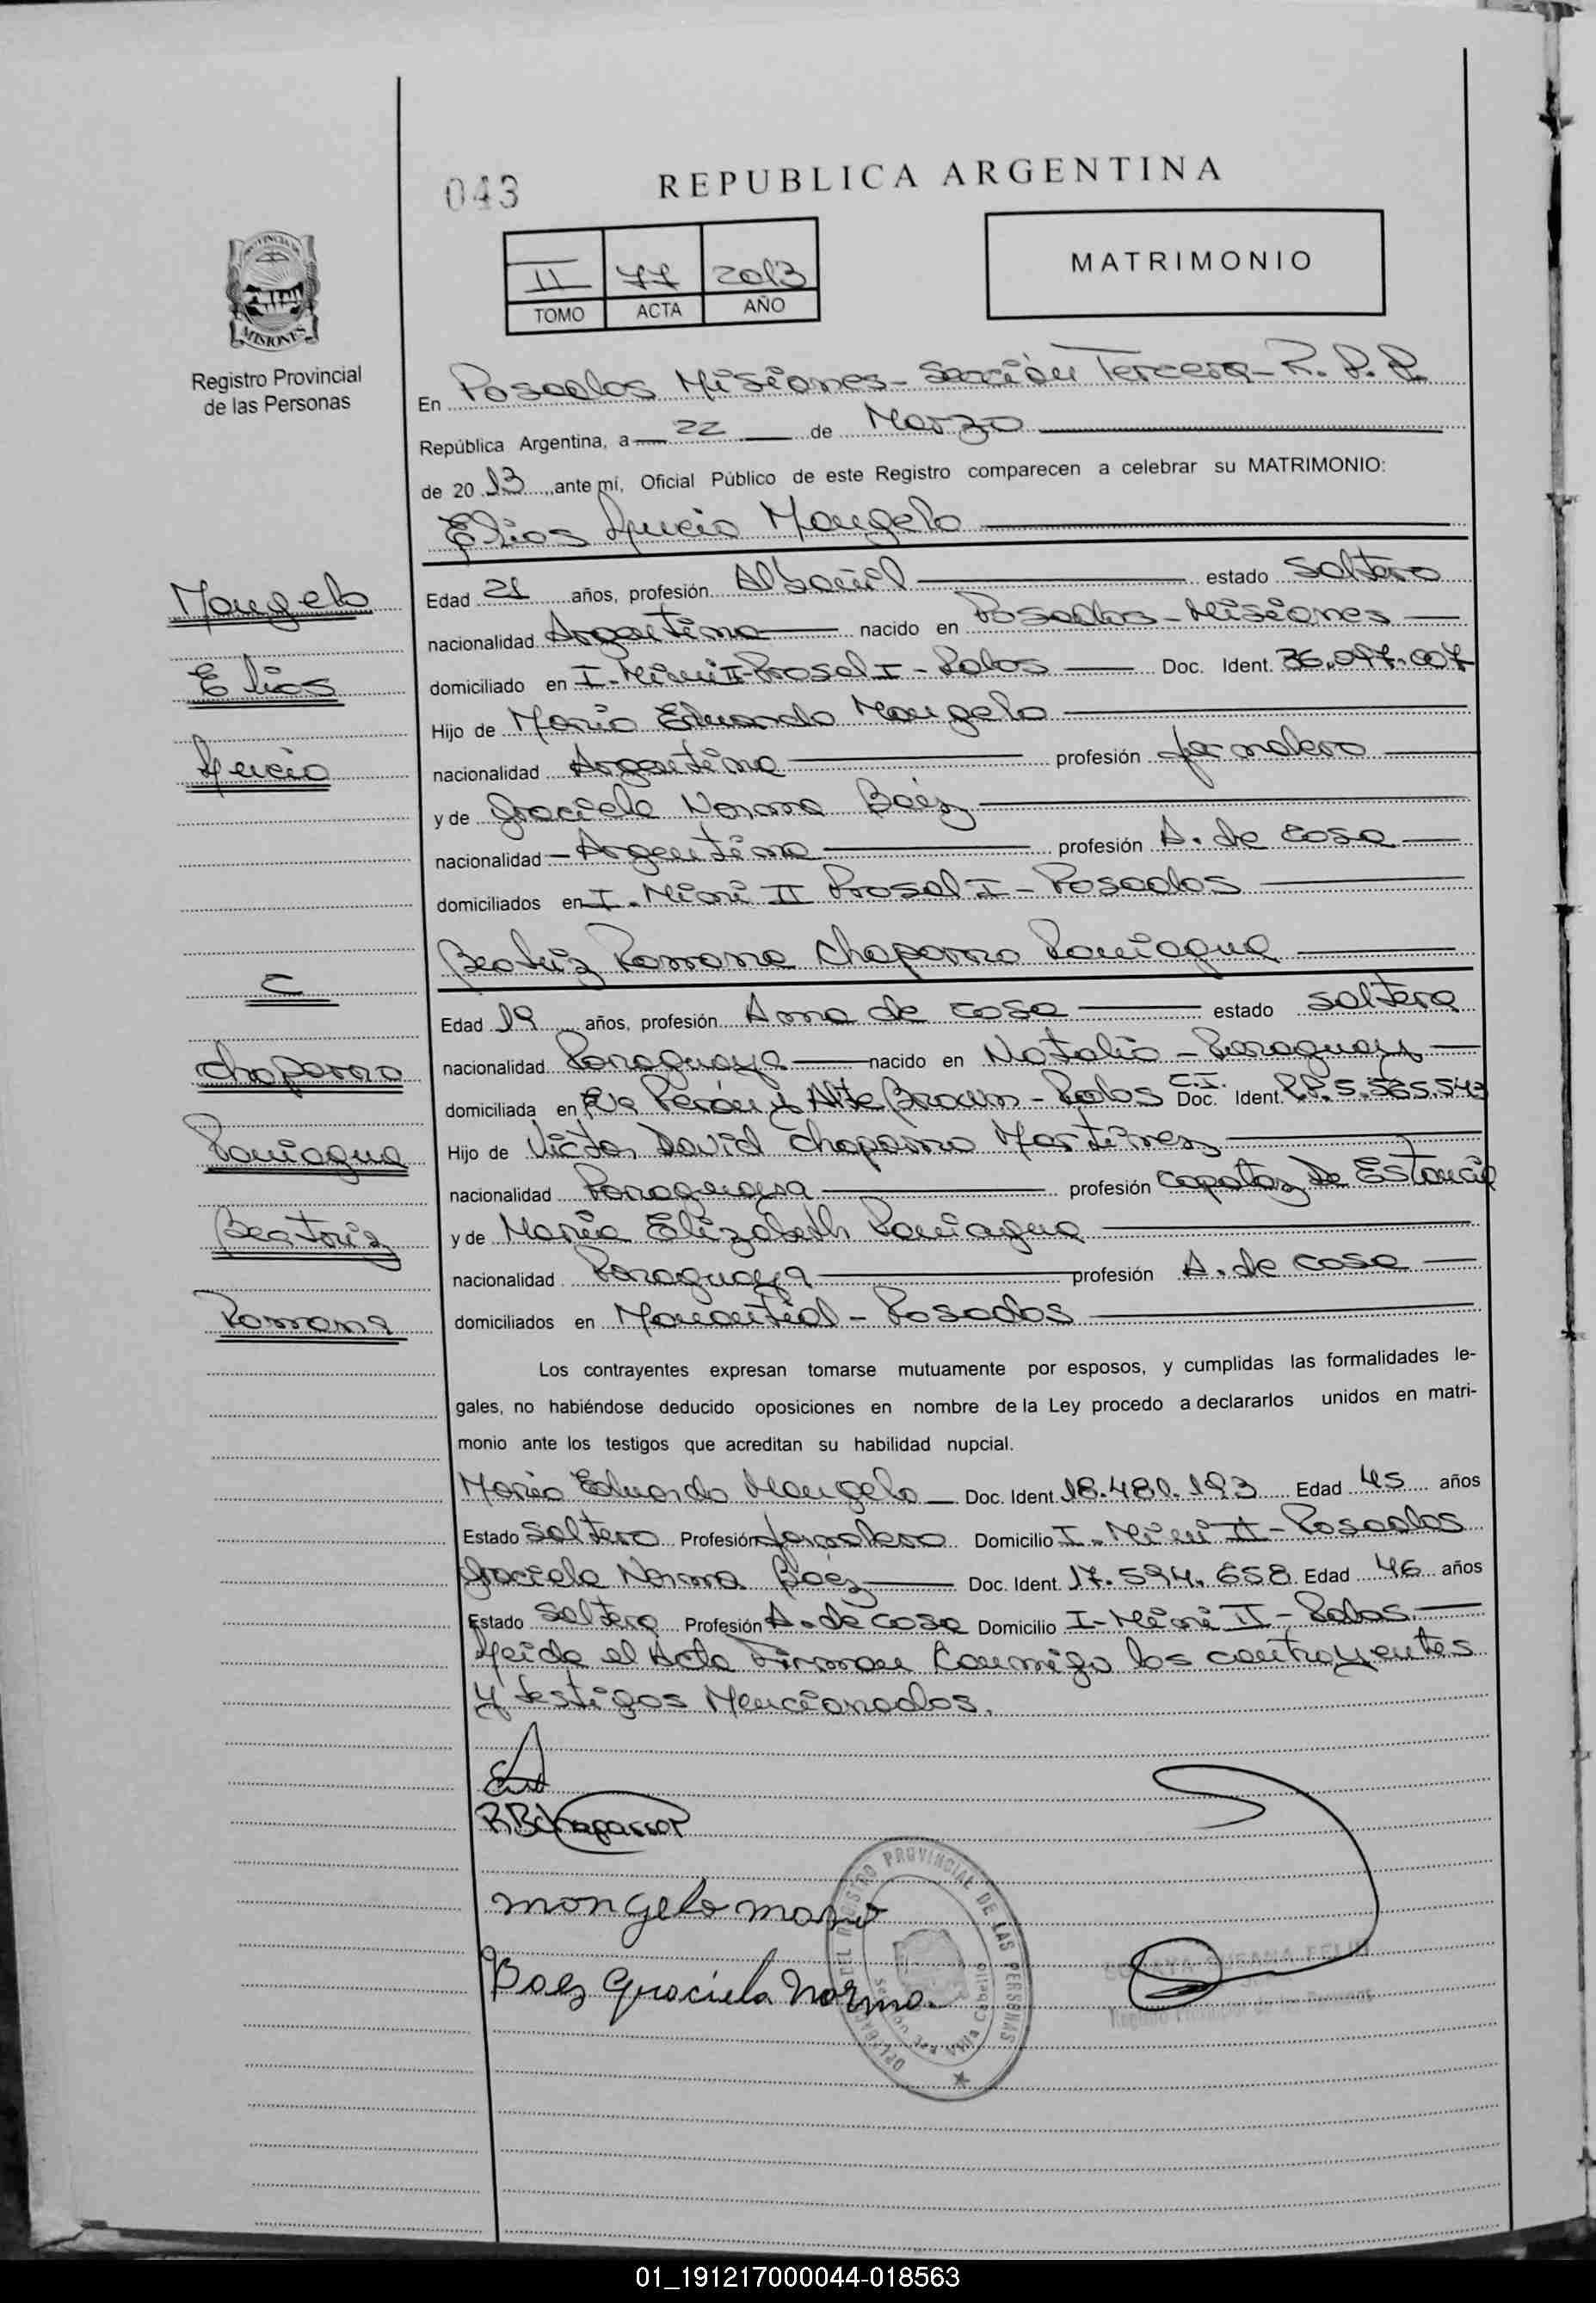 043
REPUBLICA ARGENTINA
PROVINCIA DE
MISIONES
Registro Provincial
de las Personas
II 77 2013
TOMO ACTA AÑO
MATRIMONIO
En Posadas Misiones - Sección Tercera - R.P.P.
República Argentina, a 22 de Marzo
de 2013, ante mí, Oficial Público de este Registro comparecen a celebrar su MATRIMONIO:
Elias Lucio Mongelo
Mongelo
Elias
Lucio
Edad 21 años, profesión Albañil estado Soltero
nacionalidad Argentina nacido en Posadas - Misiones
domiciliado en I-Miní II-Prosol I - Pdas Doc. Ident. 36.097.007
Hijo de Mario Eduardo Mongelo
nacionalidad Argentina profesión Jornalero
y de Graciela Norma Báez
nacionalidad - Argentina profesión A. de casa
domiciliados en I-Miní II Prosol I - Posadas
Beatriz Romona Chaparro Paniagua
C
Chaparro
Paniagua
Beatriz
Romona
Edad 19 años, profesión Ama de casa estado soltera
nacionalidad Paraguaya nacido en Natalio - Paraguay
domiciliada en Eva Perón y Alte Brown - Pdas C.I. Doc. Ident. R.P. 5.585.543
Hijo de Victor David Chaparro Martinez
nacionalidad Paraguaya profesión Capataz De Estancia
y de Maria Elizabeth Paniagua
nacionalidad Paraguaya profesión A. de casa
domiciliados en Manantial - Posadas
Los contrayentes expresan tomarse mutuamente por esposos, y cumplidas las formalidades le-
gales, no habiéndose deducido oposiciones en nombre de la Ley procedo a declararlos unidos en matri-
monio ante los testigos que acreditan su habilidad nupcial.
Mario Eduardo Mongelo Doc. Ident. 18.480.193 Edad 45 años
Estado Soltero Profesión Jornalero Domicilio I-Miní II - Posadas
Graciela Norma Báez Doc. Ident. 17.594.658 Edad 46 años
Estado Soltera Profesión A. de casa Domicilio I-Miní II - Pdas.
Leida el Acta Firman Conmigo los contrayentes
y testigos Mencionados.
RBChaparroP
mongelo mario
Baez Graciela Norma.
REGISTRO PROVINCIAL DE LAS PERSONAS
Villa Cabello
SUSANA
01_191217000044-018563